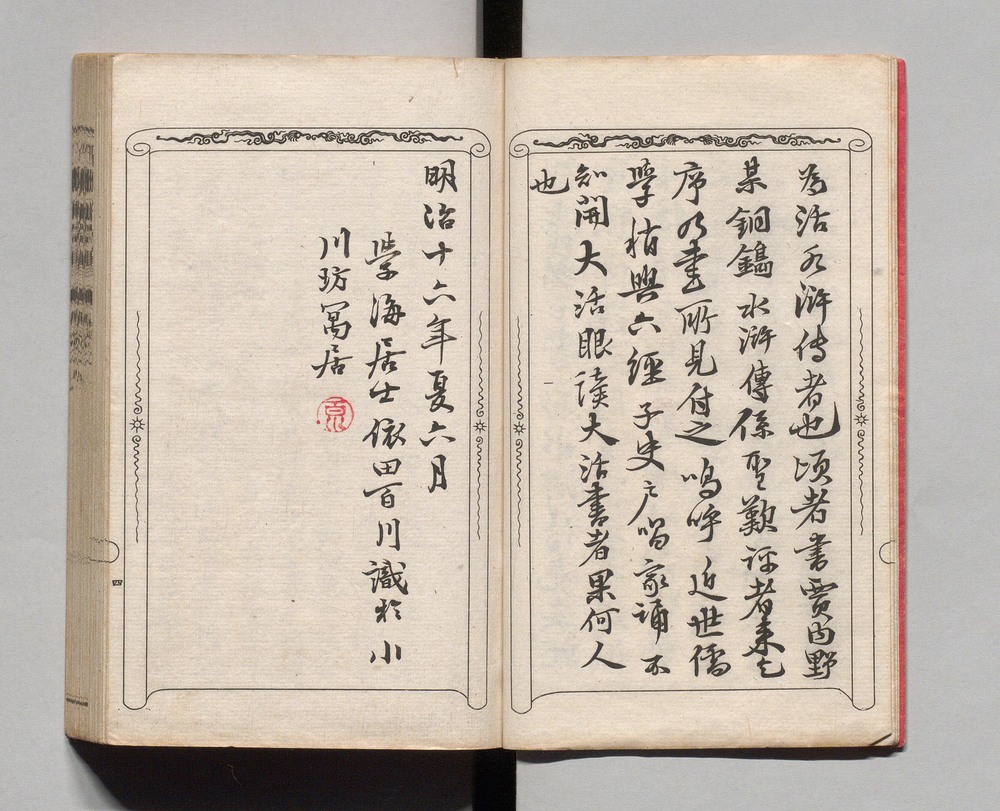 為活水滸传者也頃者書賈内野
某銅鐫水滸傳係聖歎評者来乞
序乃書所見付之嗚呼近世儒
學指與六經子史戸唱家誦不
知開大活眼读大活書者果何人
也
明治十六年夏六月
學海居士依田百川識於小
川坊寓居
四